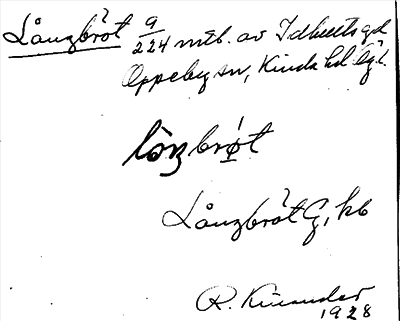 Långbröt 9/224 mtl. av Idhults gd
Oppeby sn, Kinda hd Ög l.
lôŋbrøt
Långbröt G, kb
R. Kinander
1928